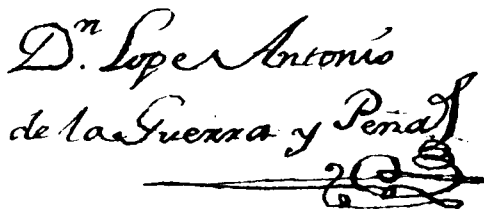 Dⁿ. Lope Antonio
de la Guerra y Peña